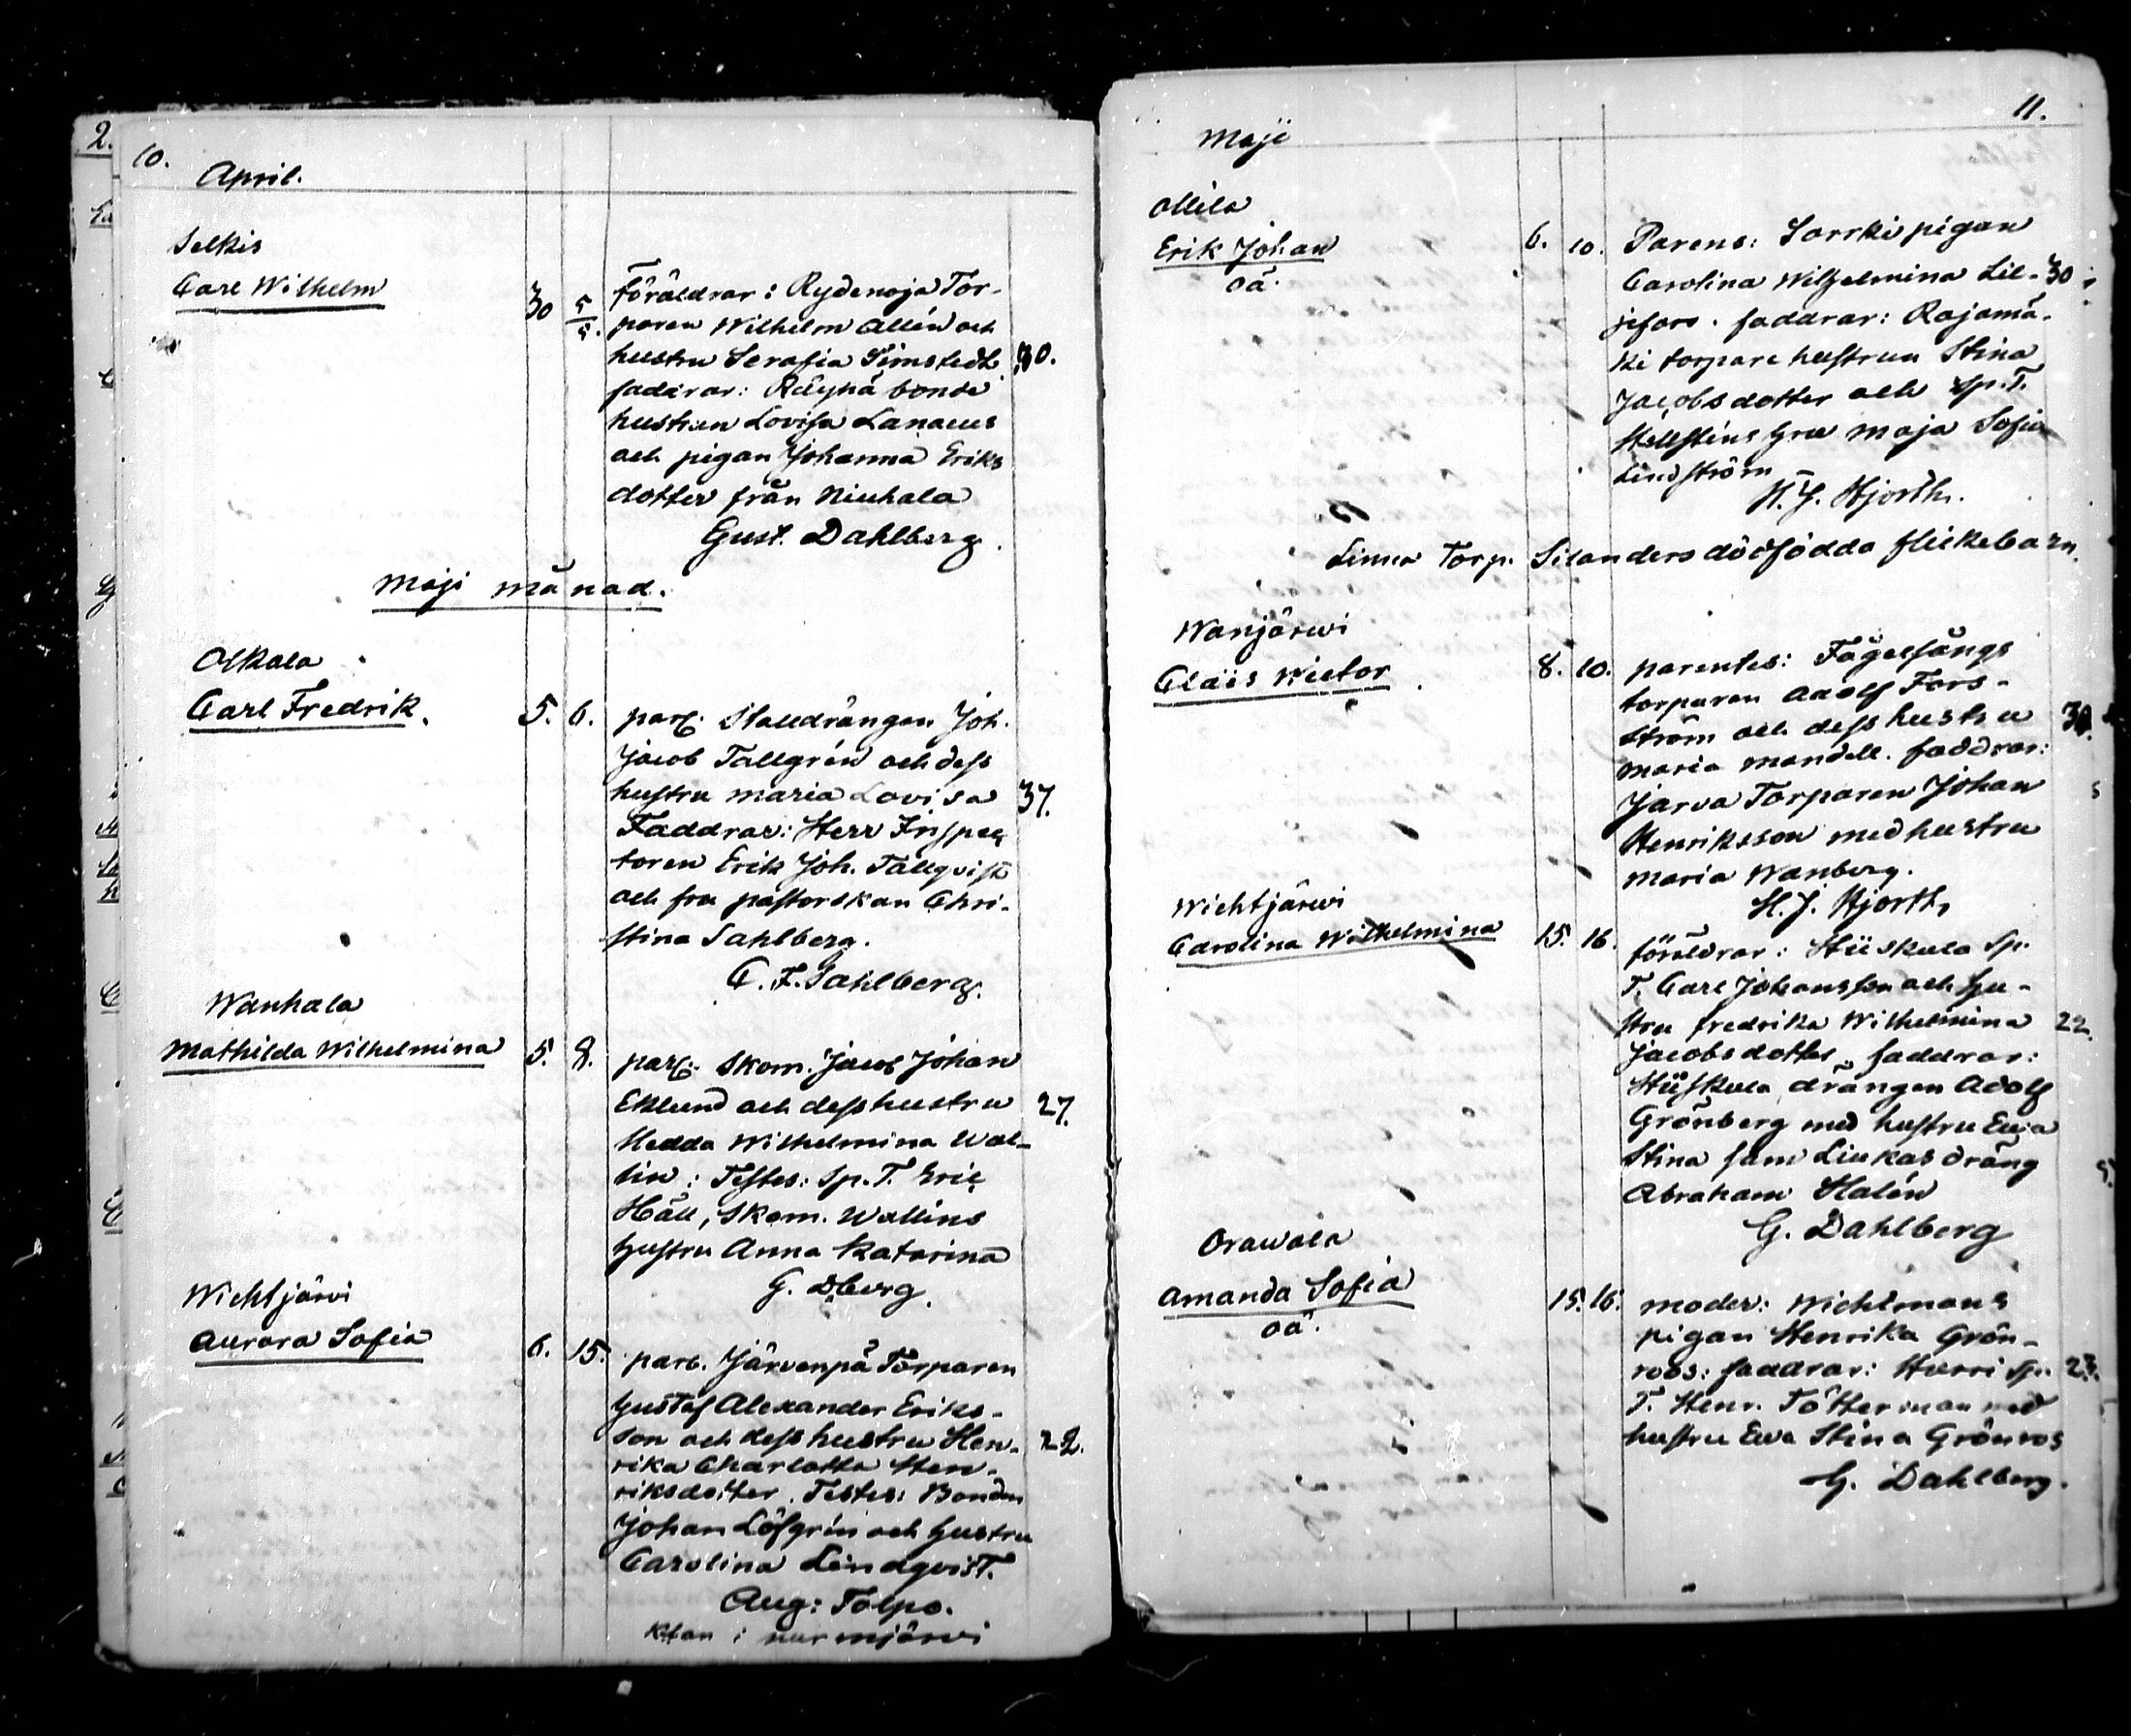 10.
April.
Selkis
Carl Wilhelm 30 5/5.
Föräldrar: Rydenoja Tor-
paren Wilhelm Allén och
hustru Serafia Timstedt 30.
faddrar: Räypä bonde
hustrun Lovisa Lanaeus
och pigan Johanna Eriks
dotter från Niuhala
Gust. Dahlberg.
Maji månad.
Olkala
Carl Fredrik. 5. 6.
par. Stalldrängen Joh.
Jacob Tallgrén och dess
hustru Maria Lovisa 37.
Faddrar: Herr Inspec
toren Erik Joh. Tallqvist
och fru pastorskan Chri-
stina Sahlberg.
C. F. Sahlberg.
Wanhala
Mathilda Wilhelmina 5. 8.
par. Skom. Jacob Johan
Eklund och dess hustru 27.
Hedda Wilhelmina Wal-
lin: Testes: Sp. T. Eric
Häll, Skom. Wallins
hustru Anna Katarina
G. Dberg.
Wichtjärvi
Aurora Sofia 6. 15.
par. Järvenpä Torparen
Gustaf Alexander Eriks-
son och dess hustru Hen- 22.
rika Charlotta Hen-
riksdotter. Testes: Bonden
Johan Löfgrén och hustru
Carolina Lindqvist.
Aug: Tolpo.
Kplan i Nurmjärvi
11.
Maji
Ollila
Erik Johan 6. 10.
oä.
Parens: Sorrki pigan
Carolina Wilhelmina Lil- 30
jefors. faddrar: Rajamä-
ki torpare hustrun Stina
Jacobsdotter och Sp. T.
Hellsténs hru Maja Sofia
Lindström
H. J. Hjorth.
Torp. Silanders dödfödda flickebarn.
Wanjärwi
Claës Wictor 8. 10.
parentes: Fågelsångs
torparen Adolf Fors-
ström och dess hustru 30.
Maria Mandell. faddrar:
Jarva Torparen Johan
Henriksson med hustru
Maria Wanberg.
H. J. Hjorth,
Wichtjärwi
Carolina Wilhelmina 15. 16.
föräldrar: Hiiskula Sp.
T. Carl Johansson och hu-
stru Fredrika Wilhelmina 22.
Jacobsdotter. faddrar:
Hiiskula drängen Adolf
Grönberg med hustru Eva
Stina sam Liukas dräng
Abraham Halén
G. Dahlberg
Orawala
Amanda Sofia 15. 16.
oä.
moder: Wichtmans
pigan Henrika Grön-
roos: faddrar: Harri Sp. 23.
T. Henr. Tötterman med
hustru Eva Stina Grönros
G. Dahlberg.